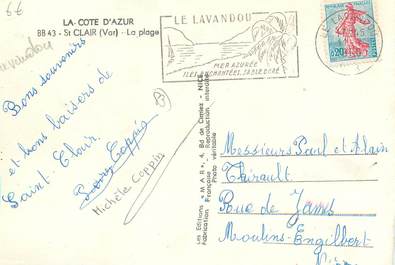 6€
LA COTE D'AZUR
BB 43 - St CLAIR (Var) - La plage
Bons souvenirs
et bons baisers de
Saint Clair.
Coppin
Michèle Coppin
LE LAVANDOU
MER AZURÉE
ILES ENCHANTÉES, SABLE DORÉ
0,20
Les Editions "MAR", 4, Bd de Cimiez - NICE
Fabrication Française - Reproduction interdite
Photo véritable
Messieurs Paul et Alain
Thirault
Rue de
Moulins-Engilbert